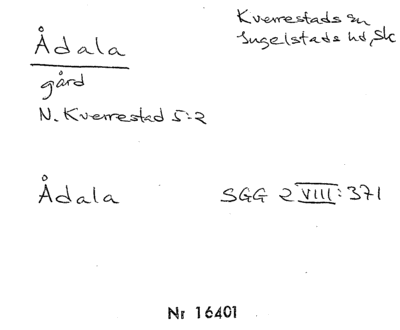 Ådala
Kverrestads sn
Ingelstads hd, Sk
gård
N. Kverrestad 5:2
Ådala
SGG 2 VIII:371
Nr 16401